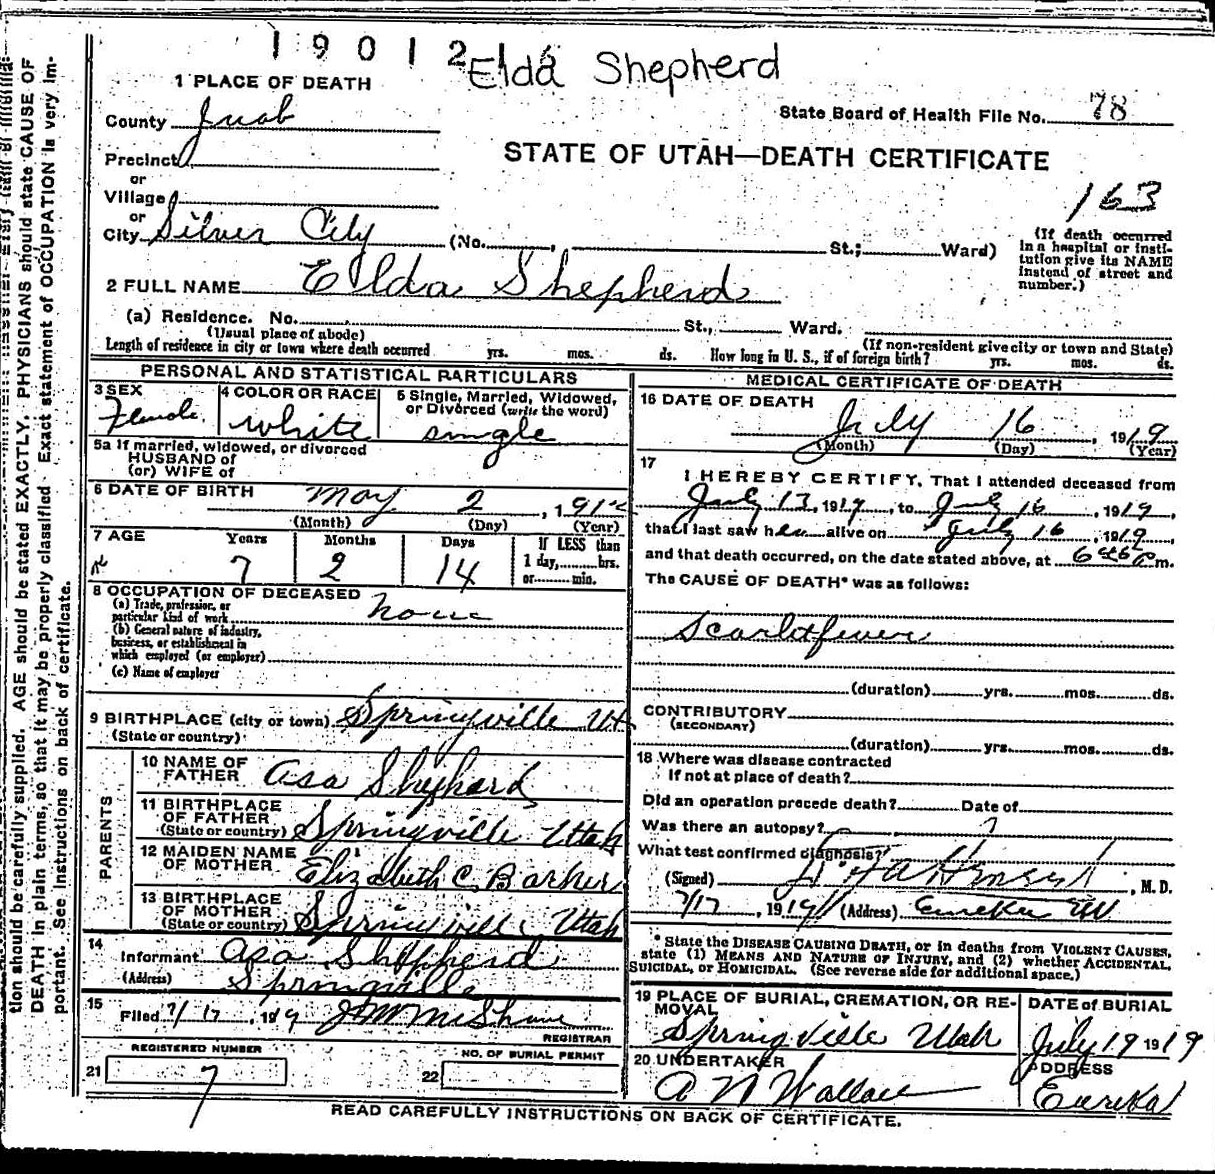 1 9 0 1 2
Elda Shepherd
1 PLACE OF DEATH
County Juab
State Board of Health File No. 78
Precinct
or
STATE OF UTAH—DEATH CERTIFICATE
Village
or
163
City Silver City (No. , St.; Ward)
(If death occurred in a hospital or institution give its NAME instead of street and number.)
2 FULL NAME Elda Shepherd
(a) Residence. No. St., Ward.
(Usual place of abode) (If non-resident give city or town and State)
Length of residence in city or town where death occurred yrs. mos. ds. How long in U. S., if of foreign birth? yrs. mos. ds.
PERSONAL AND STATISTICAL PARTICULARS
3 SEX Female
4 COLOR OR RACE white
5 Single, Married, Widowed, or Divorced (write the word) single
5a If married, widowed, or divorced
HUSBAND of
(or) WIFE of
6 DATE OF BIRTH May 2, 1912
(Month) (Day) (Year)
7 AGE Years Months Days If LESS than
7 2 14 1 day, hrs.
or min.
8 OCCUPATION OF DECEASED
(a) Trade, profession, or
particular kind of work none
(b) General nature of industry,
business, or establishment in
which employed (or employer)
(c) Name of employer
9 BIRTHPLACE (city or town) Springville Ut
(State or country)
PARENTS
10 NAME OF
FATHER Asa Shepherd
11 BIRTHPLACE
OF FATHER
(State or country) Springville Utah
12 MAIDEN NAME
OF MOTHER Elizabeth C. Barker
13 BIRTHPLACE
OF MOTHER
(State or country) Springville Utah
14
Informant Asa Shepherd
(Address) Springville
15
Filed 7/17, 1919 REGISTRAR
REGISTERED NUMBER
21 7
NO. OF BURIAL PERMIT
22
MEDICAL CERTIFICATE OF DEATH
16 DATE OF DEATH
July 16, 1919
(Month) (Day) (Year)
17
I HEREBY CERTIFY, That I attended deceased from
July 13, 1919, to July 16, 1919,
that I last saw her alive on July 16, 1919,
and that death occurred, on the date stated above, at 6 m.
The CAUSE OF DEATH* was as follows:
Scarlatfever
(duration) yrs. mos. ds.
CONTRIBUTORY
(SECONDARY)
(duration) yrs. mos. ds.
18 Where was disease contracted
If not at place of death?
Did an operation precede death? Date of
Was there an autopsy?
What test confirmed diagnosis?
(Signed) , M. D.
7/17, 1919 (Address) Eureka Ut
* State the DISEASE CAUSING DEATH, or in deaths from VIOLENT CAUSES,
state (1) MEANS AND NATURE OF INJURY, and (2) whether ACCIDENTAL,
SUICIDAL, or HOMICIDAL. (See reverse side for additional space.)
19 PLACE OF BURIAL, CREMATION, OR RE-
MOVAL
Springville Utah
DATE of BURIAL
July 19 1919
20 UNDERTAKER
A N Wallace
ADDRESS
Eureka
READ CAREFULLY INSTRUCTIONS ON BACK OF CERTIFICATE.
tion should be carefully supplied. AGE should be stated EXACTLY. PHYSICIANS should state CAUSE OF
DEATH in plain terms, so that it may be properly classified. Exact statement of OCCUPATION is very im-
portant. See instructions on back of certificate.